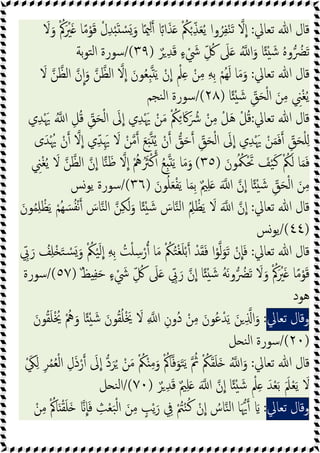 قال الله تعالي: إِلَّا تَنْفِرُوا يُعَذِّبْكُمْ عَذَابًا أَلِيمًا وَيَسْتَبْدِلْ قَوْمًا غَيْرَكُمْ وَلَا
تَضُرُّوهُ شَيْئًا وَاللَّهُ عَلَى كُلِّ شَيْءٍ قَدِيرٌ (٣٩)/سورة التوبة
قال الله تعالي: وَمَا لَهُمْ بِهِ مِنْ عِلْمٍ إِنْ يَتَّبِعُونَ إِلَّا الظَّنَّ وَإِنَّ الظَّنَّ لَا
يُغْنِي مِنَ الْحَقِّ شَيْئًا (٢٨)/سورة النجم
قال الله تعالي:قُلْ هَلْ مِنْ شُرَكَائِكُمْ مَنْ يَهْدِي إِلَى الْحَقِّ قُلِ اللَّهُ يَهْدِي
لِلْحَقِّ أَفَمَنْ يَهْدِي إِلَى الْحَقِّ أَحَقُّ أَنْ يُتَّبَعَ أَمَّنْ لَا يَهِدِّي إِلَّا أَنْ يُهْدَى
فَمَا لَكُمْ كَيْفَ تَحْكُمُونَ (٣٥) وَمَا يَتَّبِعُ أَكْثَرُهُمْ إِلَّا ظَنًّا إِنَّ الظَّنَّ لَا يُغْنِي
مِنَ الْحَقِّ شَيْئًا إِنَّ اللَّهَ عَلِيمٌ بِمَا يَفْعَلُونَ (٣٦)/سورة يونس
قال الله تعالي: إِنَّ اللَّهَ لَا يَظْلِمُ النَّاسَ شَيْئًا وَلَكِنَّ النَّاسَ أَنْفُسَهُمْ يَظْلِمُونَ
(٤٤)/يونس
قال الله تعالي: فَإِنْ تَوَلَّوْا فَقَدْ أَبْلَغْتُكُمْ مَا أُرْسِلْتُ بِهِ إِلَيْكُمْ وَيَسْتَخْلِفُ رَبِّي
قَوْمًا غَيْرَكُمْ وَلَا تَضُرُّونَهُ شَيْئًا إِنَّ رَبِّي عَلَى كُلِّ شَيْءٍ حَفِيظٌ (٥٧)/سورة
هود
وقال تعالي: وَالَّذِينَ يَدْعُونَ مِنْ دُونِ اللَّهِ لَا يَخْلُقُونَ شَيْئًا وَهُمْ يُخْلَقُونَ
(٢٠)/سورة النحل
قال الله تعالي: وَاللَّهُ خَلَقَكُمْ ثُمَّ يَتَوَفَّاكُمْ وَمِنْكُمْ مَنْ يُرَدُّ إِلَى أَرْذَلِ الْعُمُرِ لِكَيْ
لَا يَعْلَمَ بَعْدَ عِلْمٍ شَيْئًا إِنَّ اللَّهَ عَلِيمٌ قَدِيرٌ (٧٠)/النحل
وقال تعالي: يَا أَيُّهَا النَّاسُ إِنْ كُنْتُمْ فِي رَيْبٍ مِنَ الْبَعْثِ فَإِنَّا خَلَقْنَاكُمْ مِنْ